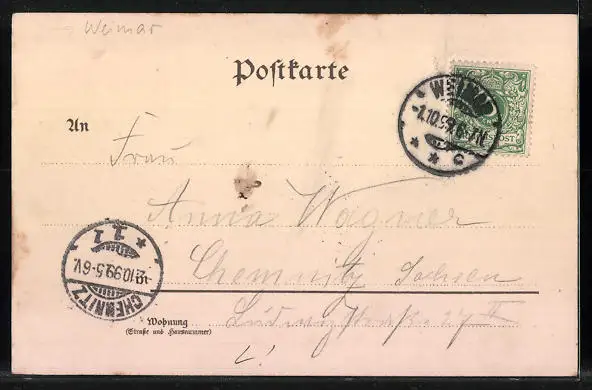 Weimar
Postkarte
WEIMAR
-1.10.99.6-7N.
* * c
POST
An
Frau
Anna Wagner
Chemnitz Sachsen
CHEMNITZ
-2.10.99.5-6V.
* 1 1 *
Wohnung
(Straße und Hausnummer)
Ludwigstraße 27 II